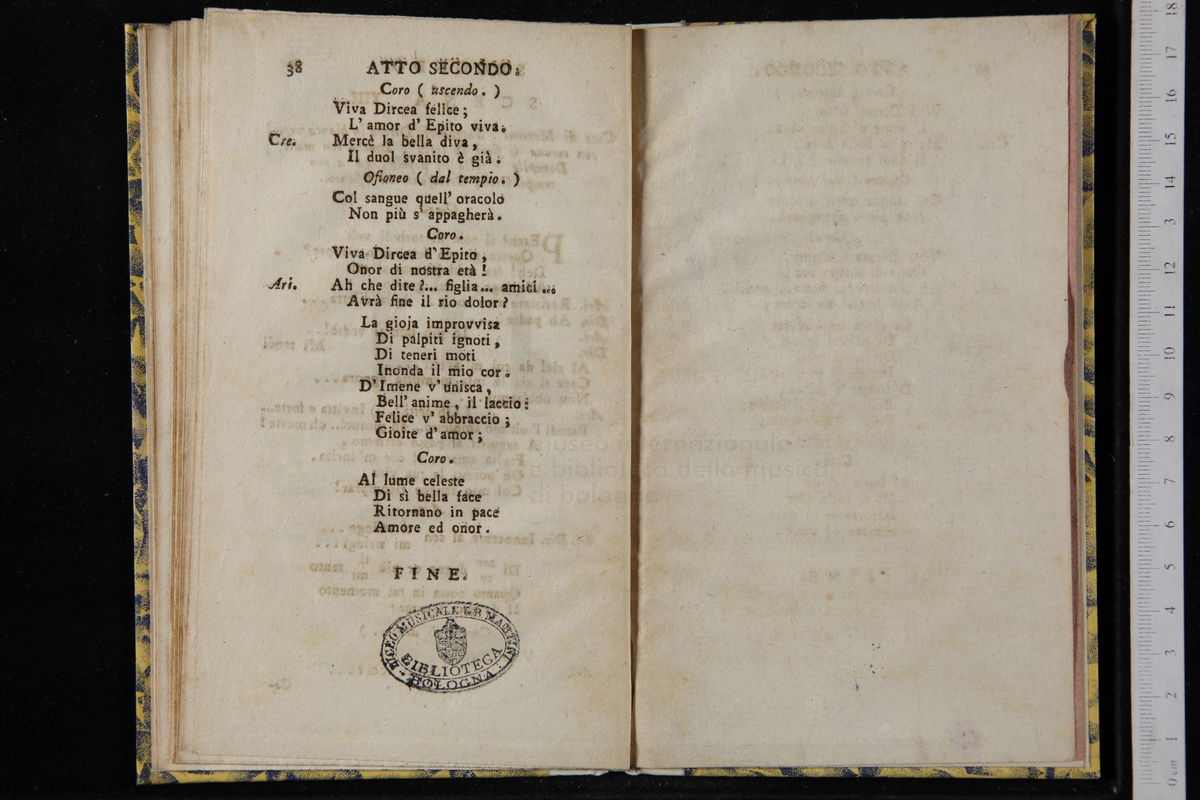 38 ATTO SECONDO.
Coro ( uscendo. )
Viva Dircea felice;
L' amor d' Epito viva.
Cre. Mercè la bella diva,
Il duol svanito è già.
Ofioneo ( dal tempio. )
Col sangue quell' oracolo
Non più s' appagherà.
Coro.
Viva Dircea d'Epito,
Onor di nostra età!
Ari. Ah che dite?... figlia... amici...
Avrà fine il rio dolor?
La gioja improvvisa
Di palpiti ignoti,
Di teneri moti
Inonda il mio cor.
D' Imene v' unisca,
Bell' anime, il laccio:
Felice v' abbraccio;
Gioite d' amor;
Coro.
Al lume celeste
Di sì bella face
Ritornano in pace
Amore ed onor.
FINE.
LICEO MUSICALE G.B. MARTINI
BIBLIOTECA
BOLOGNA
museo internazionale
e biblioteca della musica
di bologna
0 cm 1 2 3 4 5 6 7 8 9 10 11 12 13 14 15 16 17 18